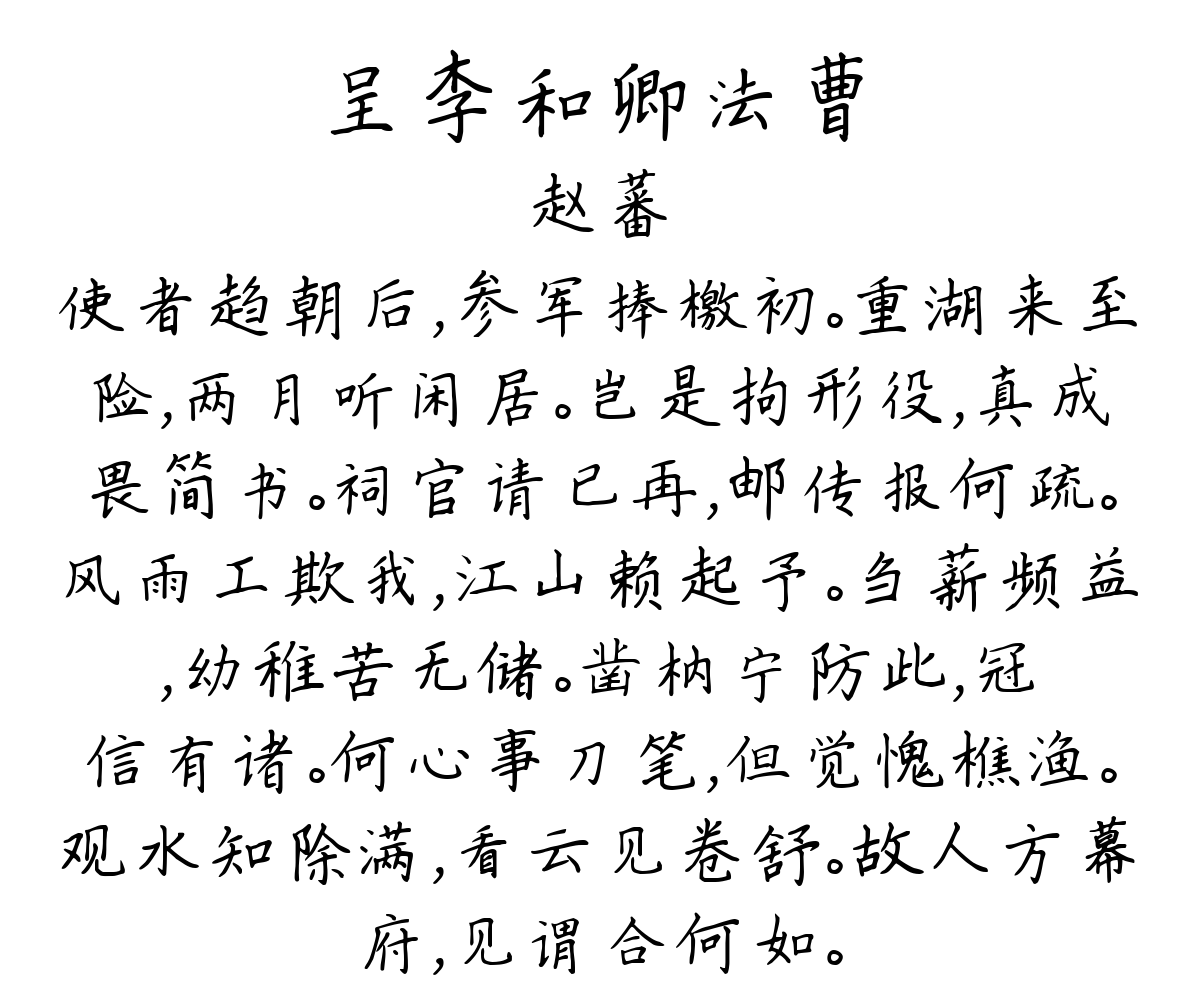 呈李和卿法曹
赵蕃
使者趋朝后,参军捧檄初。重湖来至
险,两月听闲居。岂是拘形役,真成
畏简书。祠官请已再,邮传报何疏。
风雨工欺我,江山赖起予。刍薪频益
,幼稚苦无储。凿枘宁防此,冠
信有诸。何心事刀笔,但觉愧樵渔。
观水知除满,看云见卷舒。故人方幕
府,见谓合何如。